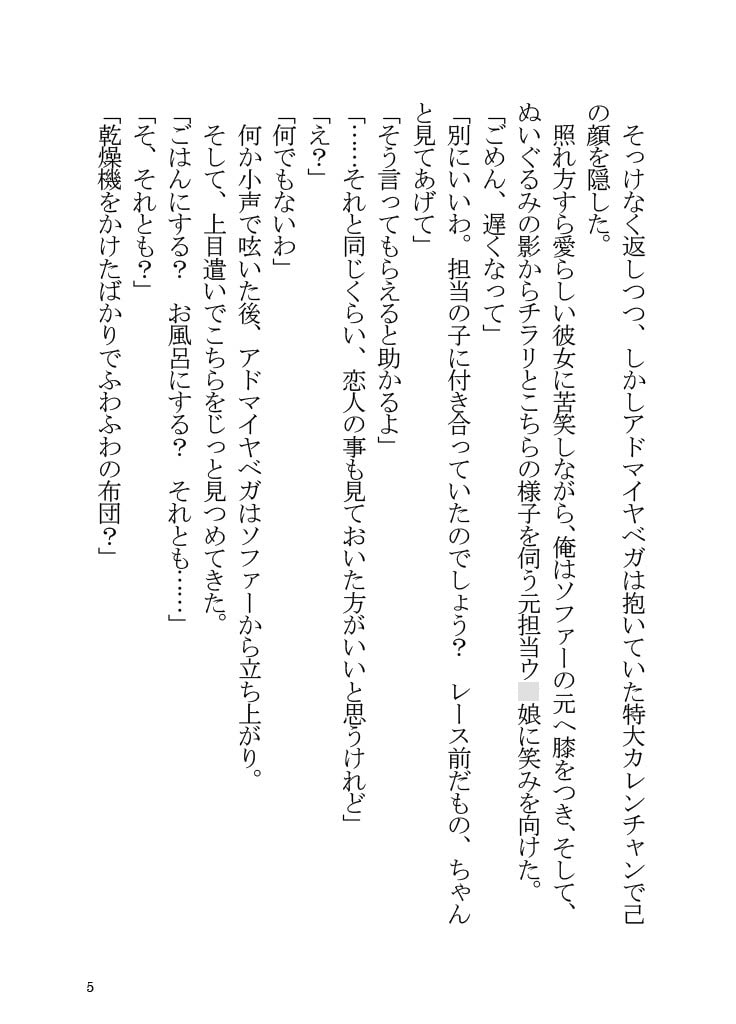 そっけなく返しつつ、しかしアドマイヤベガは抱いていた特大カレンチャンで己
の顔を隠した。
　照れ方すら愛らしい彼女に苦笑しながら、俺はソファーの元へ膝をつき、そして、
ぬいぐるみの影からチラリとこちらの様子を伺う元担当ウ　娘に笑みを向けた。
「ごめん、遅くなって」
「別にいいわ。担当の子に付き合っていたのでしょう？　レース前だもの、ちゃん
と見てあげて」
「そう言ってもらえると助かるよ」
「……それと同じくらい、恋人の事も見ておいた方がいいと思うけれど」
「え？」
「何でもないわ」
　何か小声で呟いた後、アドマイヤベガはソファーから立ち上がり。
　そして、上目遣いでこちらをじっと見つめてきた。
「ごはんにする？　お風呂にする？　それとも……」
「そ、それとも？」
「乾燥機をかけたばかりでふわふわの布団？」
5